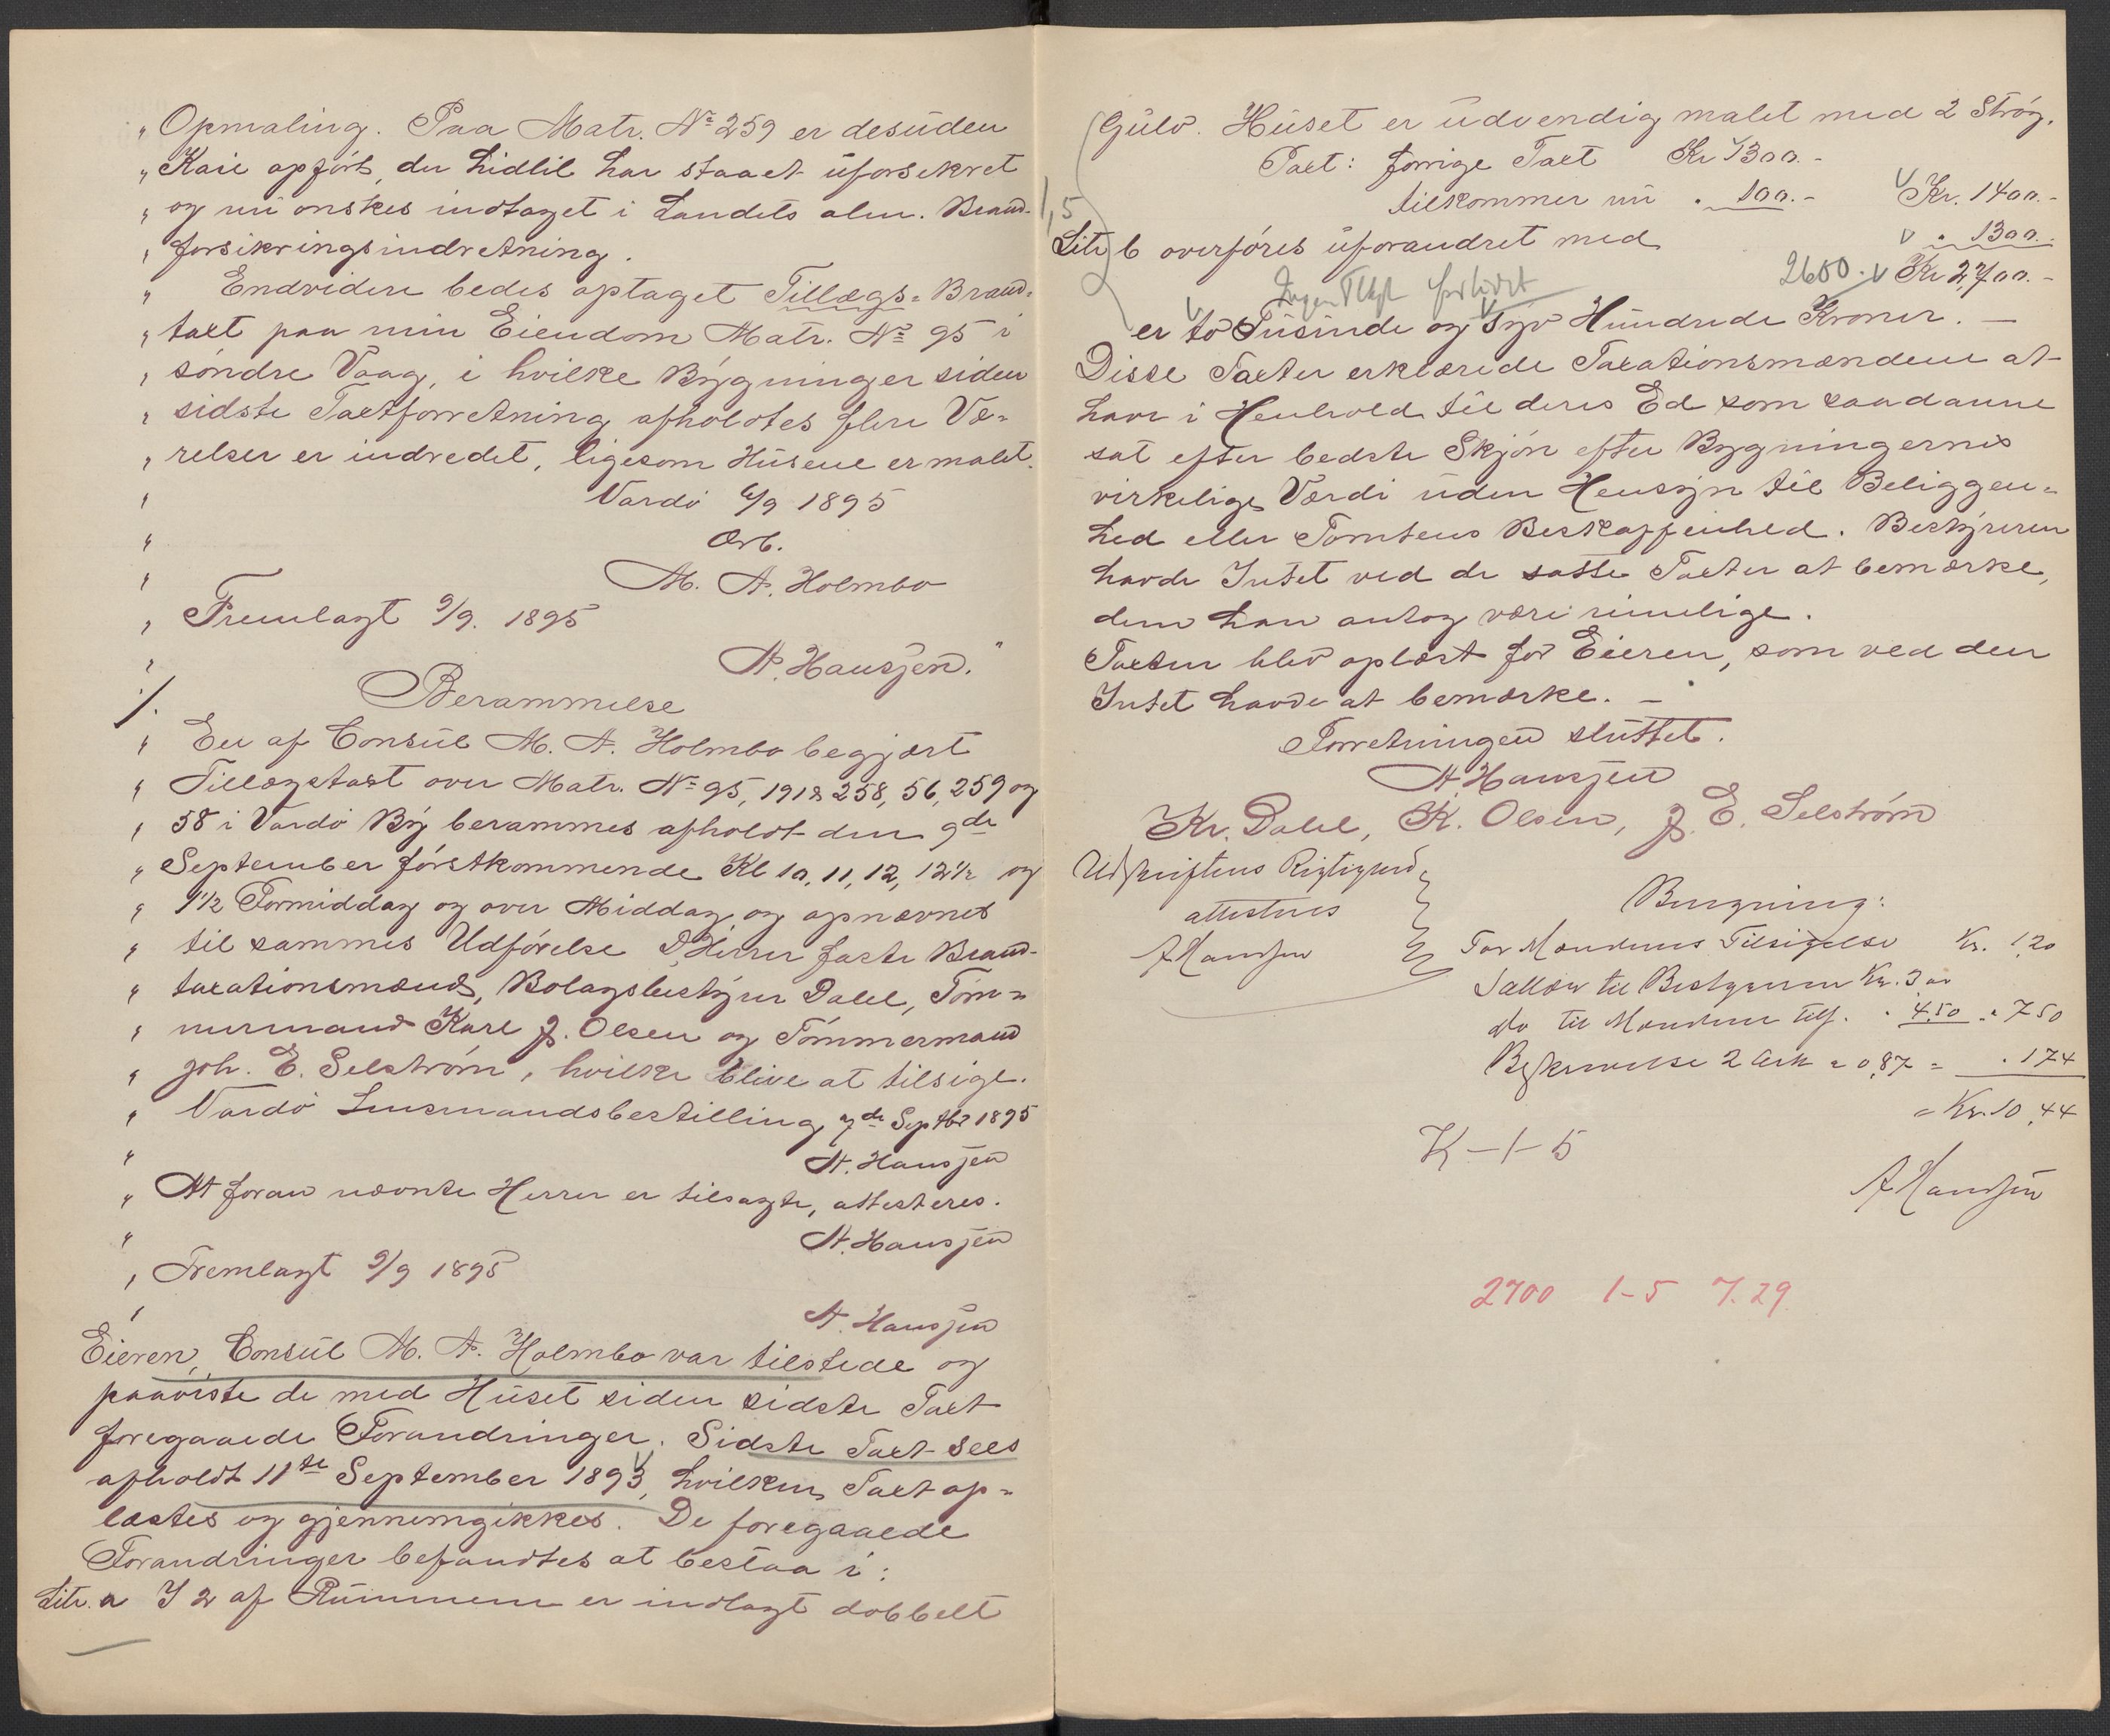 " Opmaling. Paa Matr. No 259 er desuden
" Kaie opført, der hidtil har staaet uforsikret
" og nu ønskes indtaget i Landets alm. Brand-
" forsikringsindretning.
" Endvidere bedes optaget Tillægs=Brand=
" taxt paa min Eiendom Matr. No 95 i
" søndre Vaag, i hvilke Bygninger siden
" sidste Taxtforretning afholdtes flere Væ=
" relser er indredet, ligesom Husene er malet.
" Vardø 6/9 1895
" Ærb.
" M. A. Holmbo
" Fremlagt 9/9. 1895
" A. Hansjen."
./. Berammelse
" En af Consul M. A. Holmbo begjært
" Tillægstaxt over Matr. No 95, 191 & 258, 56, 259 og
" 58 i Vardø By berammes afholdt den 9de
" September førstkommende Kl 10, 11, 12, 12½ og
" 1½ Formiddag og over Middag og opnævnes
" til sammes Udførelse D'Herrer faste Brand-
" taxationsmænd, Bolagsbestyrer Dahl, Tøm=
" mermand Karl J. Olsen og Tømmermand
" Joh. E. Selstrøm, hvilke blive at tilsige.
" Vardø Lensmandsbestilling 7de Septbr 1895
" A. Hansjen
" At foran nævnte Herrer er tilsagte, attesteres.
" A. Hansjen
" Fremlagt 9/9 1895
" A. Hansjen
Eieren, Consul M. A. Holmbo var tilstede og
paaviste de med Huset siden sidste Taxt
foregaaede Forandringer. Sidste Taxt sees
afholdt 11te September 1893, hvilken Taxt op=
læstes og gjennemgikkes. De foregaaede
Forandringer befandtes at bestaa i:
Litr. a I 2 af Rummene er indlagt dobbelt
Gulv. Huset er udvendig malet med 2 Strøg.
Taxt: forrige Taxt Kr 1300.-
tilkommer nu " 100.- Kr. 1400.-
1,5
Litr b overføres uforandret med " 1300.
2600. Kr 2,700.-
Ingen Tlgt
er to Tusinde og syv Hundrede Kroner. —
Disse Taxter erklærede Taxationsmændene at
have i Henhold til deres Ed som saadanne
sat efter bedste Skjøn efter Bygningernes
virkelige Værdi uden Hensyn til Beliggen=
hed eller Tomtens Beskaffenhed. Bestyreren
havde Intet ved de satte Taxter at bemærke,
dem han antog være rimelige.
Taxten blev oplæst for Eieren, som ved den
Intet havde at bemærke. —
Forretningen sluttet.
A. Hansjen
Kr. Dahl, K. Olsen, J. E. Selstrøm
Udskriftens Rigtighed
attesteres
A Hansjen
Beregning:
For Mændenes Tilsigelse Kr. 1,20
Salær til Bestyreren Kr. 3 00
do til Mændene tils. " 4.50 " 7 50
Beskrivelse 2 Ark a 0,87 = " 1 74
= Kr. 10,44
K-1-5
A Hansjen
2700 1-5 7.29